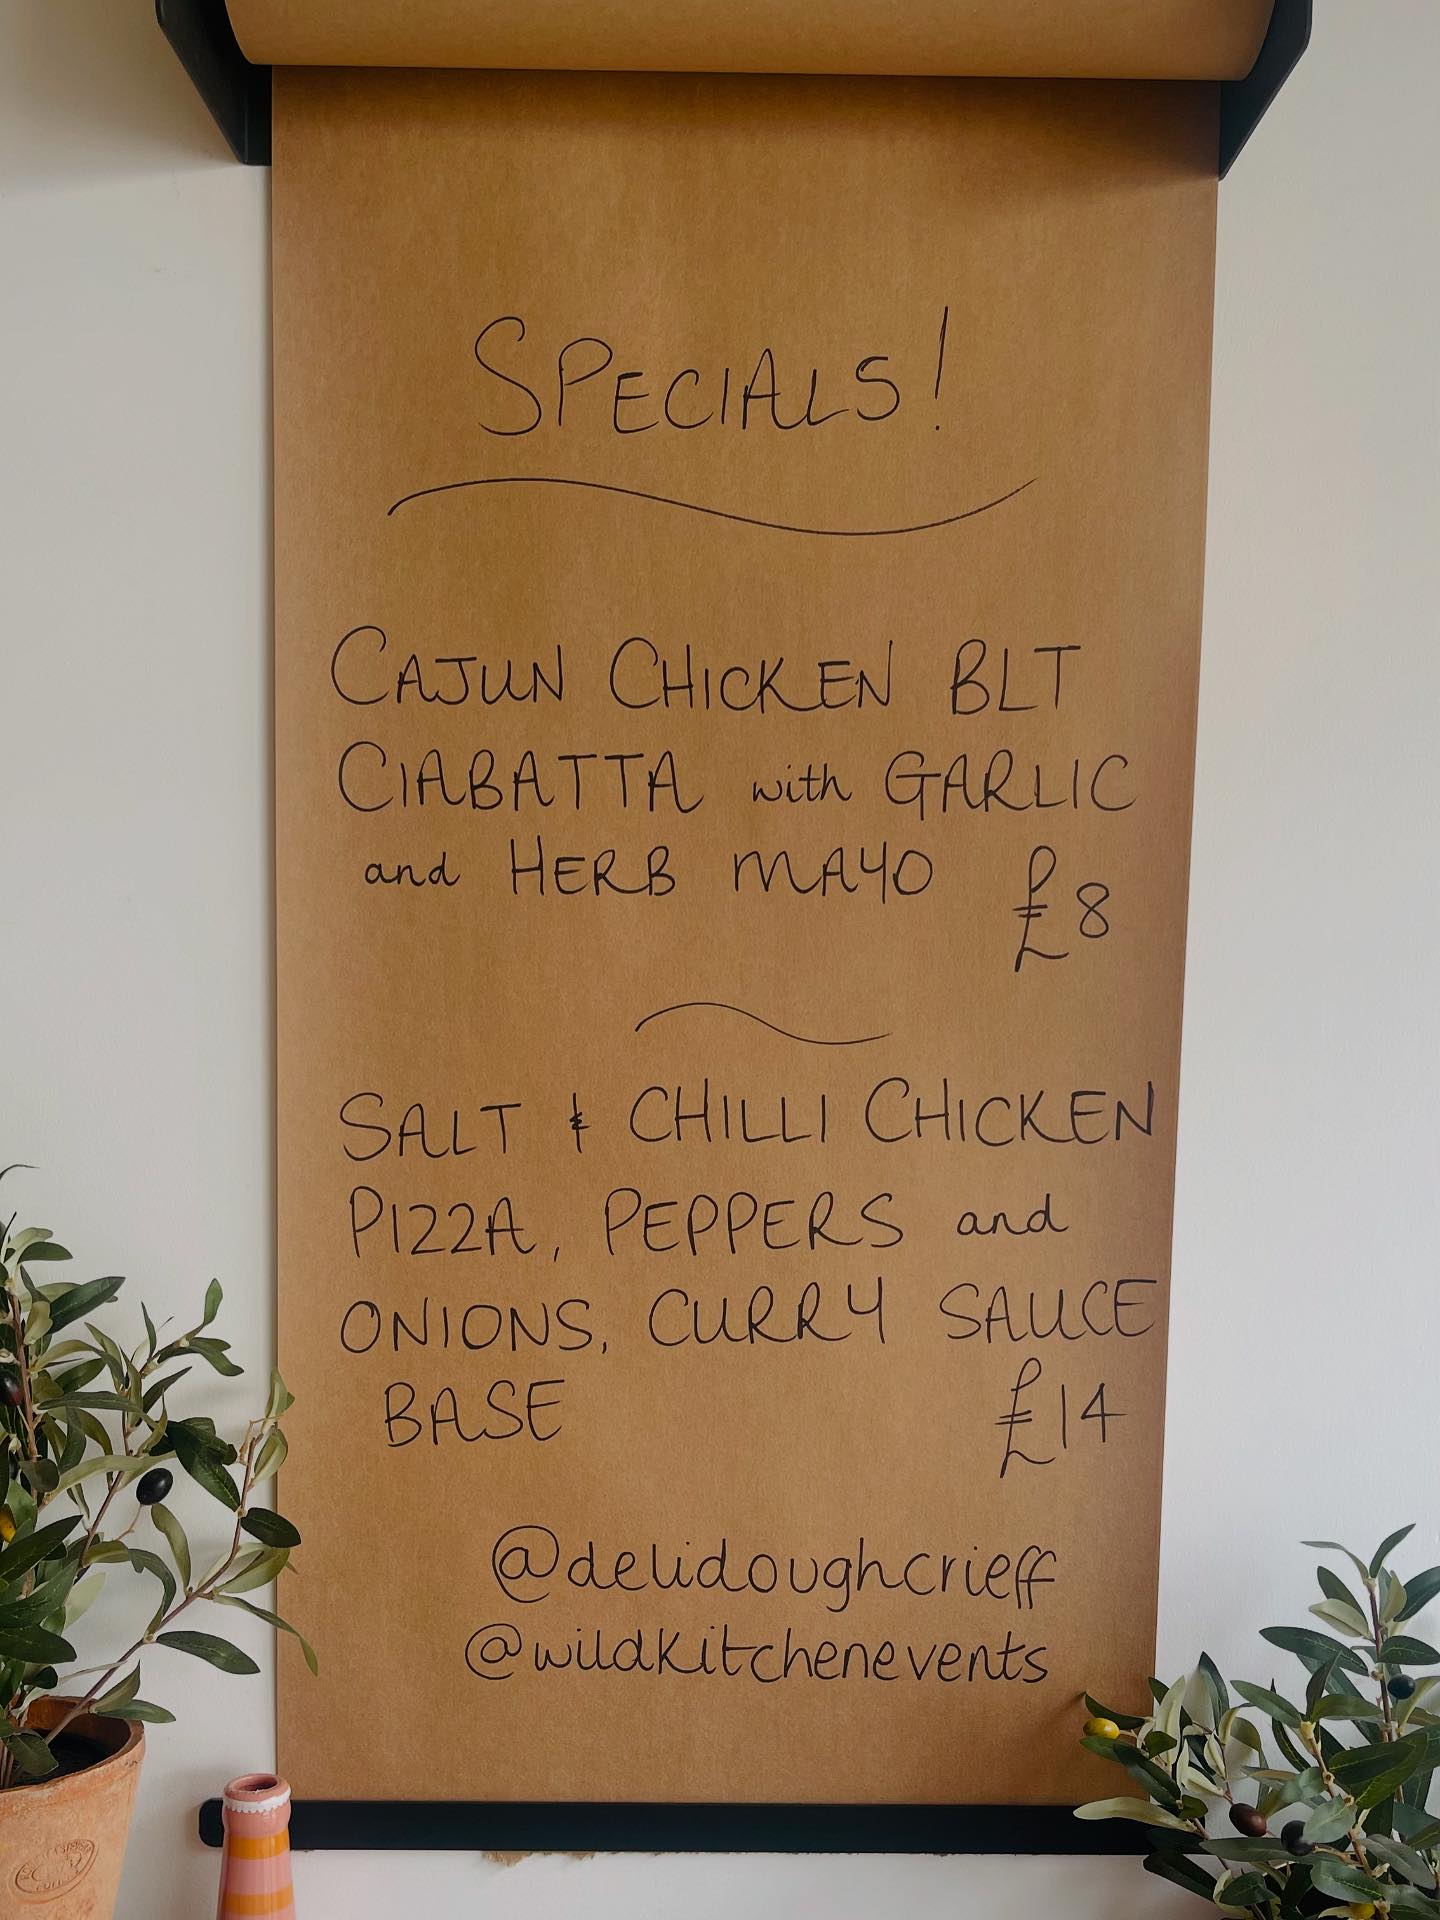 SPECIALS!
CAJUN CHICKEN BLT
CIABATTA with GARLIC
and HERB MAYO £8
SALT & CHILLI CHICKEN
PIZZA, PEPPERS and
ONIONS, CURRY SAUCE
BASE £14
@delidoughcrieff
@wildkitchenevents